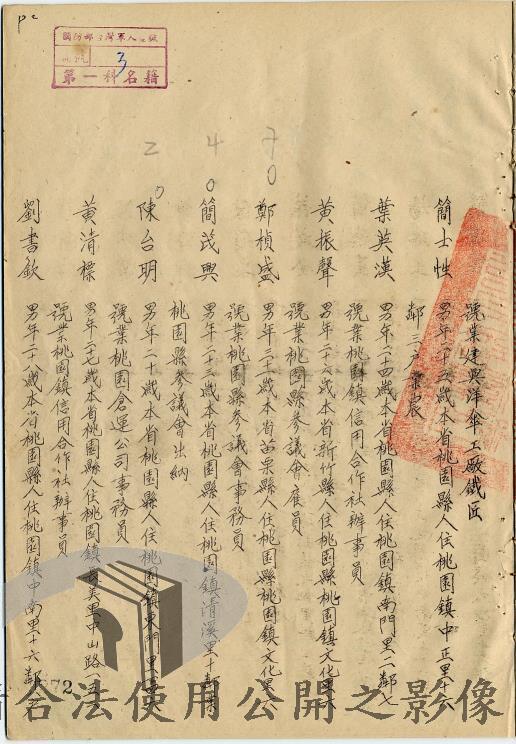 號業建興洋傘工廠鐵匠
簡士性 男年二十五歲本省桃園縣人住桃園鎮中正里十六
鄰三戶業農
葉英漢 男年二十四歲本省桃園縣人住桃園鎮南門里二鄰七
號業桃園鎮信用合作社辦事員
黃振聲 男年二十六歲本省新竹縣人住桃園縣桃園鎮文化里六
號業桃園縣參議會雇員
鄭楨盛 男年三十歲本省苗栗縣人住桃園縣桃園鎮文化里六
號業桃園縣參議會事務員
簡茂興 男年二十三歲本省桃園縣人住桃園鎮清溪里十鄰業
桃園縣參議會出納
陳台明 男年二十歲本省桃園縣人住桃園鎮東門里
號業桃園倉運公司事務員
黃清標 男年二十七歲本省桃園縣人住桃園鎮長美里中山路一
號業桃園鎮信用合作社辦事員
劉書欽 男年二十八歲本省桃園縣人住桃園鎮中南里十六鄰
第一科名籍
3
240
72
合法使用公開之影像